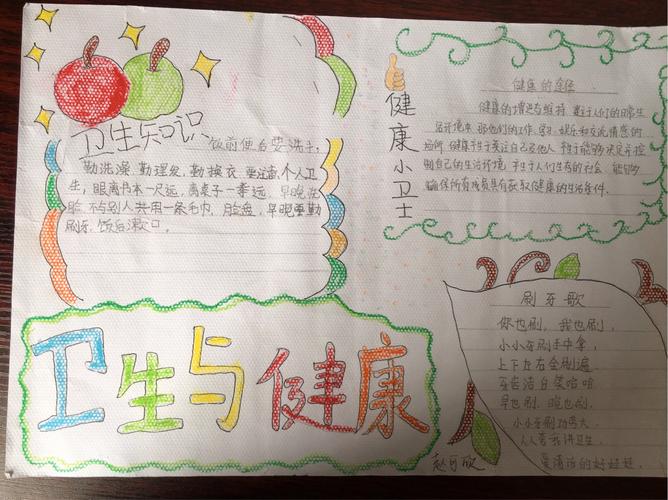 卫生知识
饭前便后要洗手,
勤洗澡,勤理发,勤换衣,更注意个人卫
生,眼离书本一尺远,离桌子一拳远,早晚洗
脸,不与别人共用一条毛巾,脸盆,早晚要勤
刷牙,饭后漱口。
健康小卫士
健康的途径
健康的增进与维持,基于人们的日常生
活环境中,那他们的工作、学习、娱乐和交流情感的
场所,健康基于关注自己及他人,基于能够决定并控
制自己的生活环境,基于人们生存的社会,能够
确保所有成员具有获取健康的生活条件.
卫生与健康
刷牙歌
你也刷,我也刷,
小小牙刷手中拿,
上下左右全刷遍
牙齿洁白笑哈哈
早也刷,晚也刷,
小小牙刷功劳大,
人人爱我讲卫生
爱清洁的好娃娃.